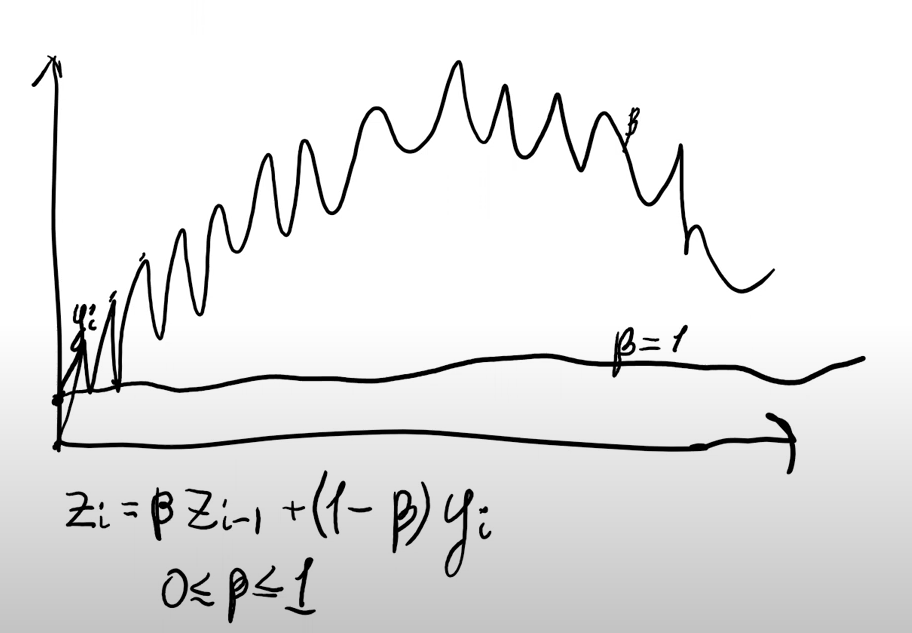 β
y_i
β = 1
z_i = β z_{i-1} + (1 - β) y_i
0 ≤ β ≤ 1